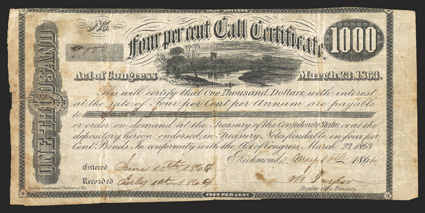 No.
Four per cent Call Certificate.
1000
ONE THOUSAND
Act of Congress March 23, 1863.
This will certify that One Thousand Dollars, with interest
at the rate of Four per Cent per Annum are payable to
or order on demand at the Treasury of the Confederate States, or at the
depository hereon endorsed, in Treasury Notes fundable in four per
Cent. Bonds. In conformity with the Act of Congress, March 23, 1863
Richmond, 1864
Entered 1864
Recorded 1864
Register of the Treasury.
FOUR PER CENT